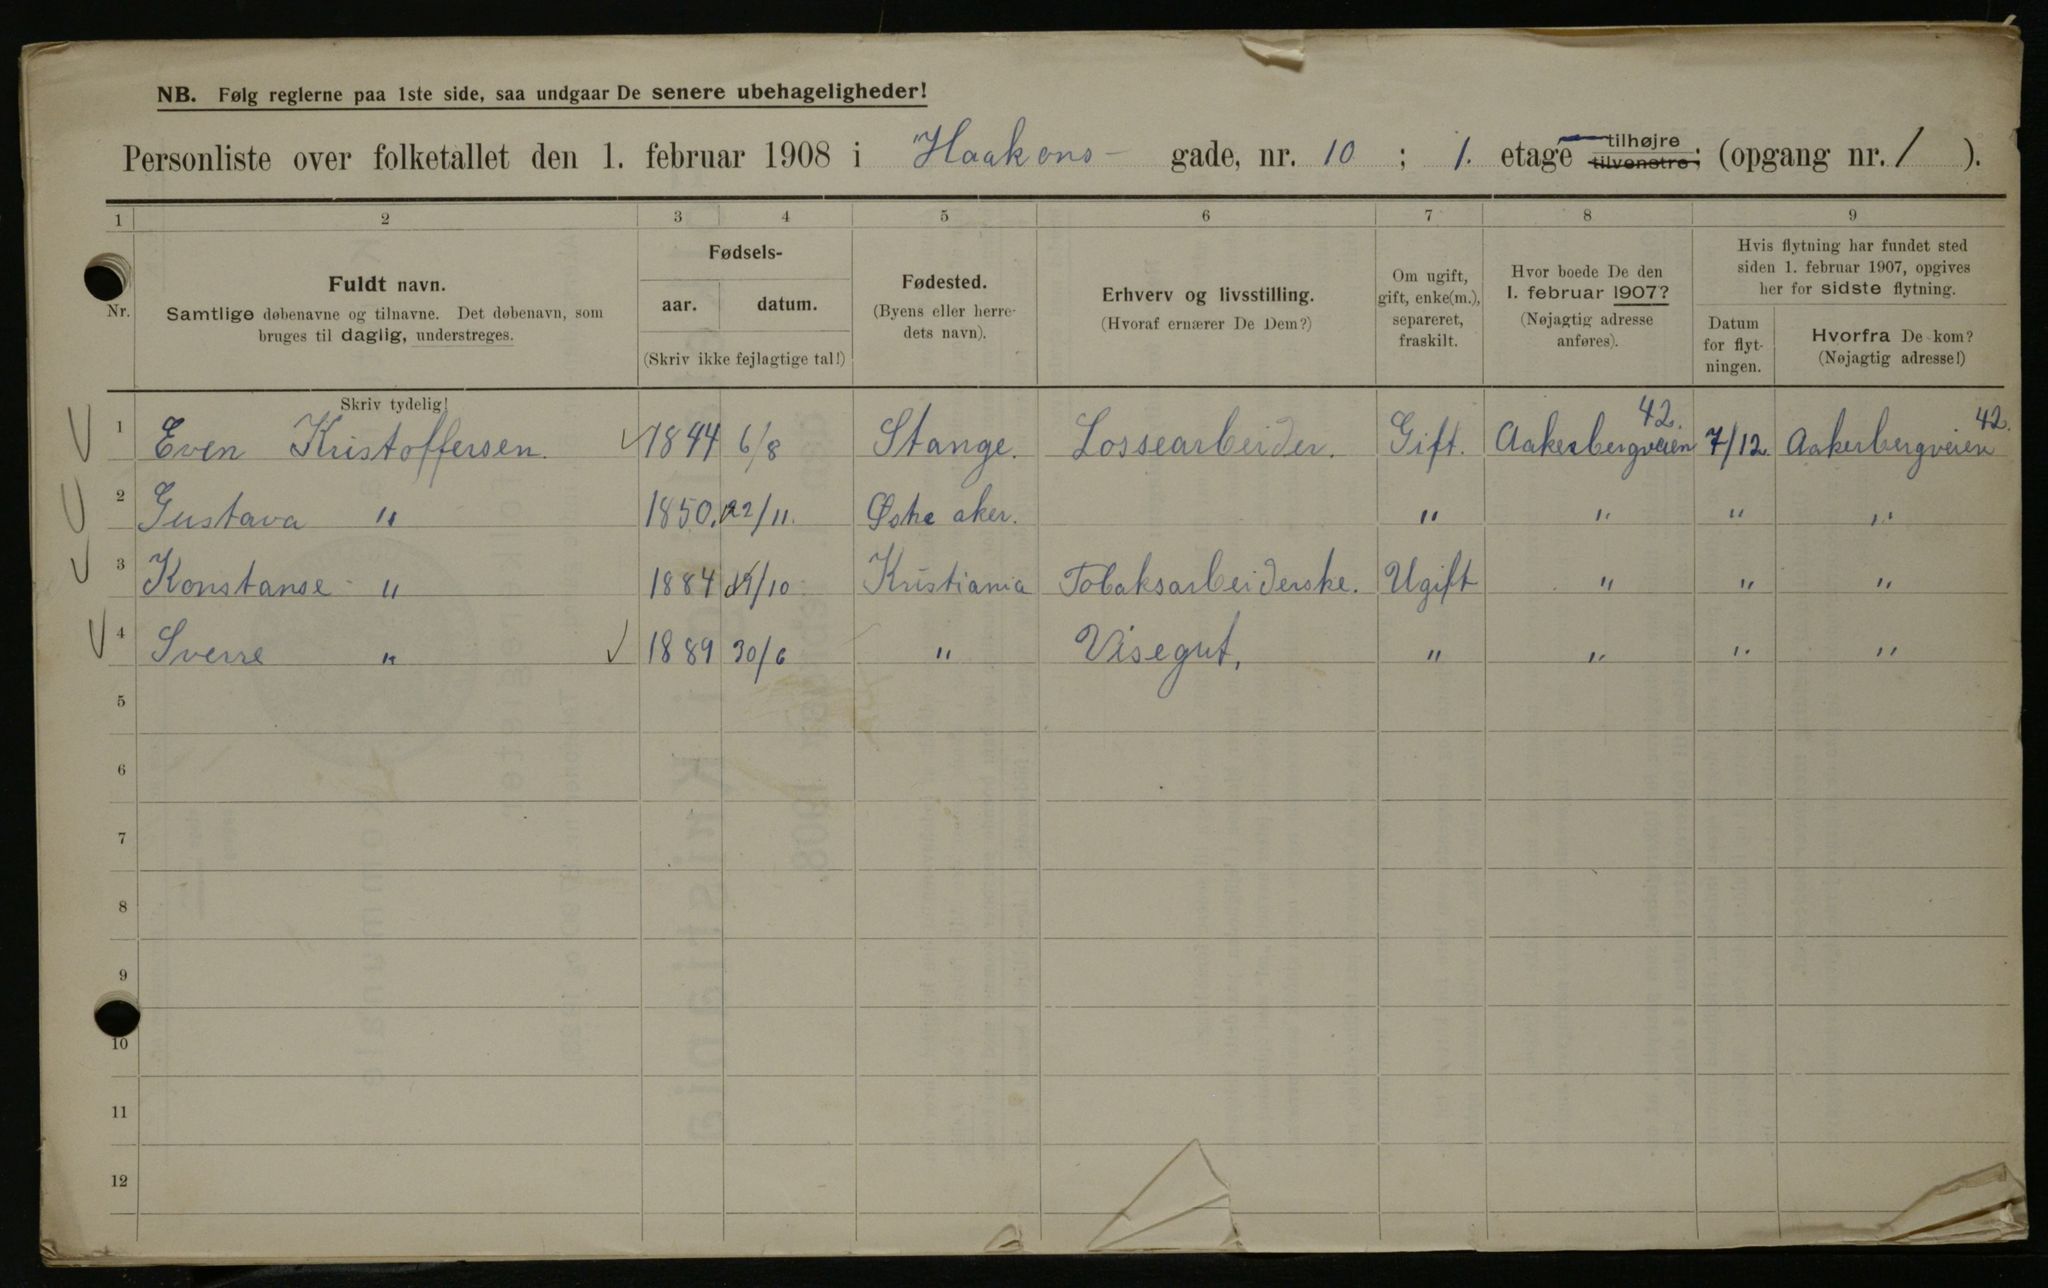 NB. Følg reglerne paa 1ste side, saa undgaar De senere ubehageligheder!
Personliste over folketallet den 1. februar 1908 i Haakons- gade, nr. 10 ; 1. etage tilhøjre tilvenstre; (opgang nr. / ).
1 2 3 4 5 6 7 8 9
Nr.
Fuldt navn.
Samtlige døbenavne og tilnavne. Det døbenavn, som
bruges til daglig, understreges.
Skriv tydelig!
Fødsels-
aar. datum.
(Skriv ikke fejlagtige tal!)
Fødested.
(Byens eller herre-
dets navn).
Erhverv og livsstilling.
(Hvoraf ernærer De Dem?)
Om ugift,
gift, enke(m.),
separeret,
fraskilt.
Hvor boede De den
1. februar 1907?
(Nøjagtig adresse
anføres).
Hvis flytning har fundet sted
siden 1. februar 1907, opgives
her for sidste flytning.
Datum
for flyt-
ningen.
Hvorfra De kom?
(Nøjagtig adresse!)
1 Even Kristoffersen. 1844 6/8 Stange. Lossearbeider. Gift. Aakerbergveien 42. 7/12. Aakerbergveien 42.
2 Gustava " 1850. 22/11. Østre aker. " " " "
3 Konstanse " 1884 /10 Kristiania Tobaksarbeiderske. Ugift " " "
4 Sverre " 1889 30/6 " Visegut, " " " "
5
6
7
8
9
10
11
12